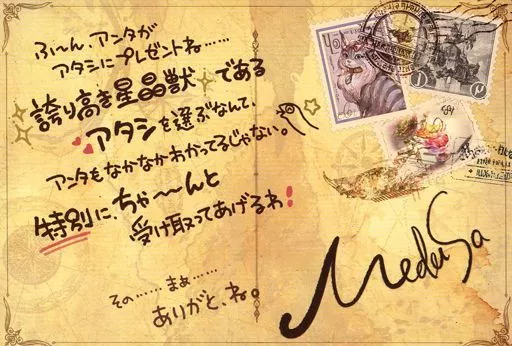 ふ〜ん、アンタが
アタシにプレゼントね……
誇り高き星晶獣である
アタシを選ぶなんて、
アンタもなかなかわかってるじゃない。
特別に、ちゃ〜〜んと
受け取ってあげるわ！
その……まぁ……
ありがと、ね。
Medusa